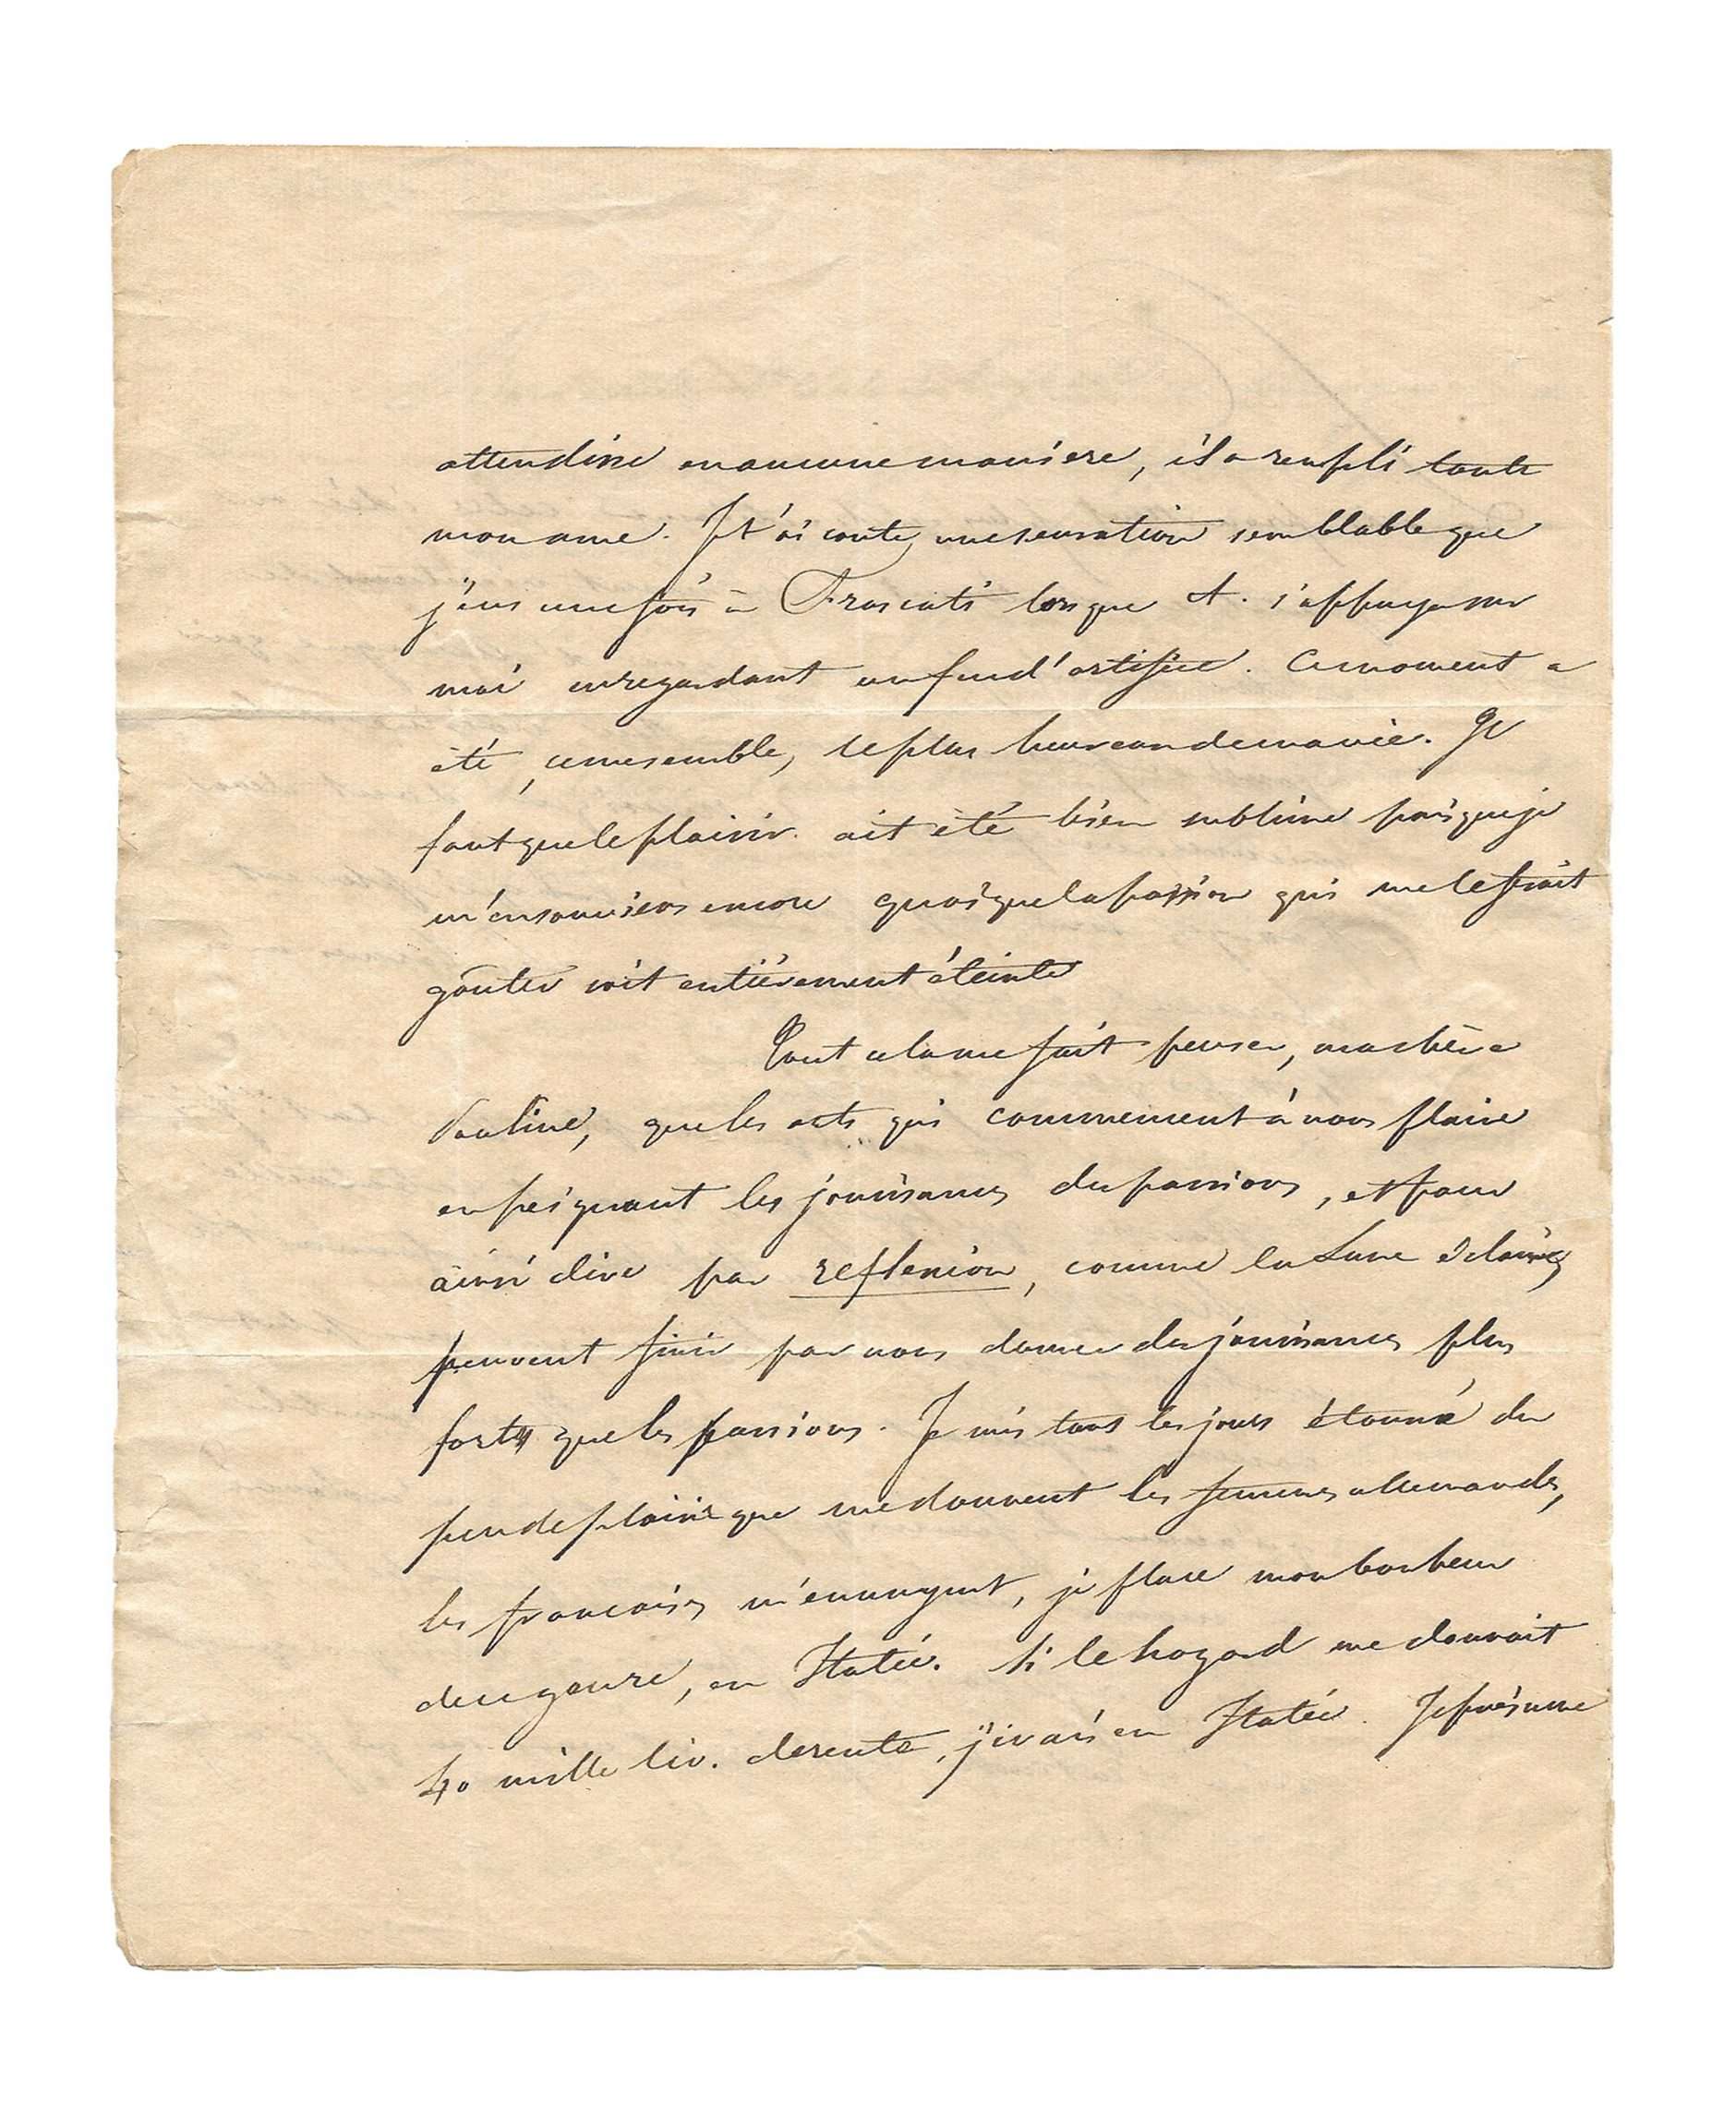 attendrie en aucune maniere, il a rempli toute
mon ame. Je t'ai conté, une sensation semblable que
j'eus une fois à Frascati lorsque A. s'appuya sur
moi en regardant un feu d'artifice. Ce moment a
été, ce me semble, le plus heureux de ma vie. Il
faut que le plaisir ait été bien sublime puisque je
m'en souviens encore quoique la passion qui me le fesait
goûter soit entièrement éteinte
Tout cela me fait penser, ma chère
Pauline, que les arts qui commencent à nous plaire
en peignant les jouissances des passions, et pour
ainsi dire par reflexion, comme la Lune éclaire,
peuvent finir par nous donner des jouissances plus
fortes que les passions. Je suis tous les jours étonné du
peu de plaisir que me donnent les femmes allemandes,
les françaises m'ennuyent, je place mon bonheur
de ce genre, en Italie. Si le hazard me donnait
40 mille liv. de rente, j'irais en Italie. Je présume